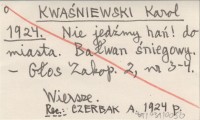 KWAŚNIEWSKI Karol
1924. Nie jedźmy hań! do
miasta. Bałwan śniegowy.
- Głos Zakop. 2, nr 3-4.
Wiersze.
Rec.: CZERBAK A. 1924 p.